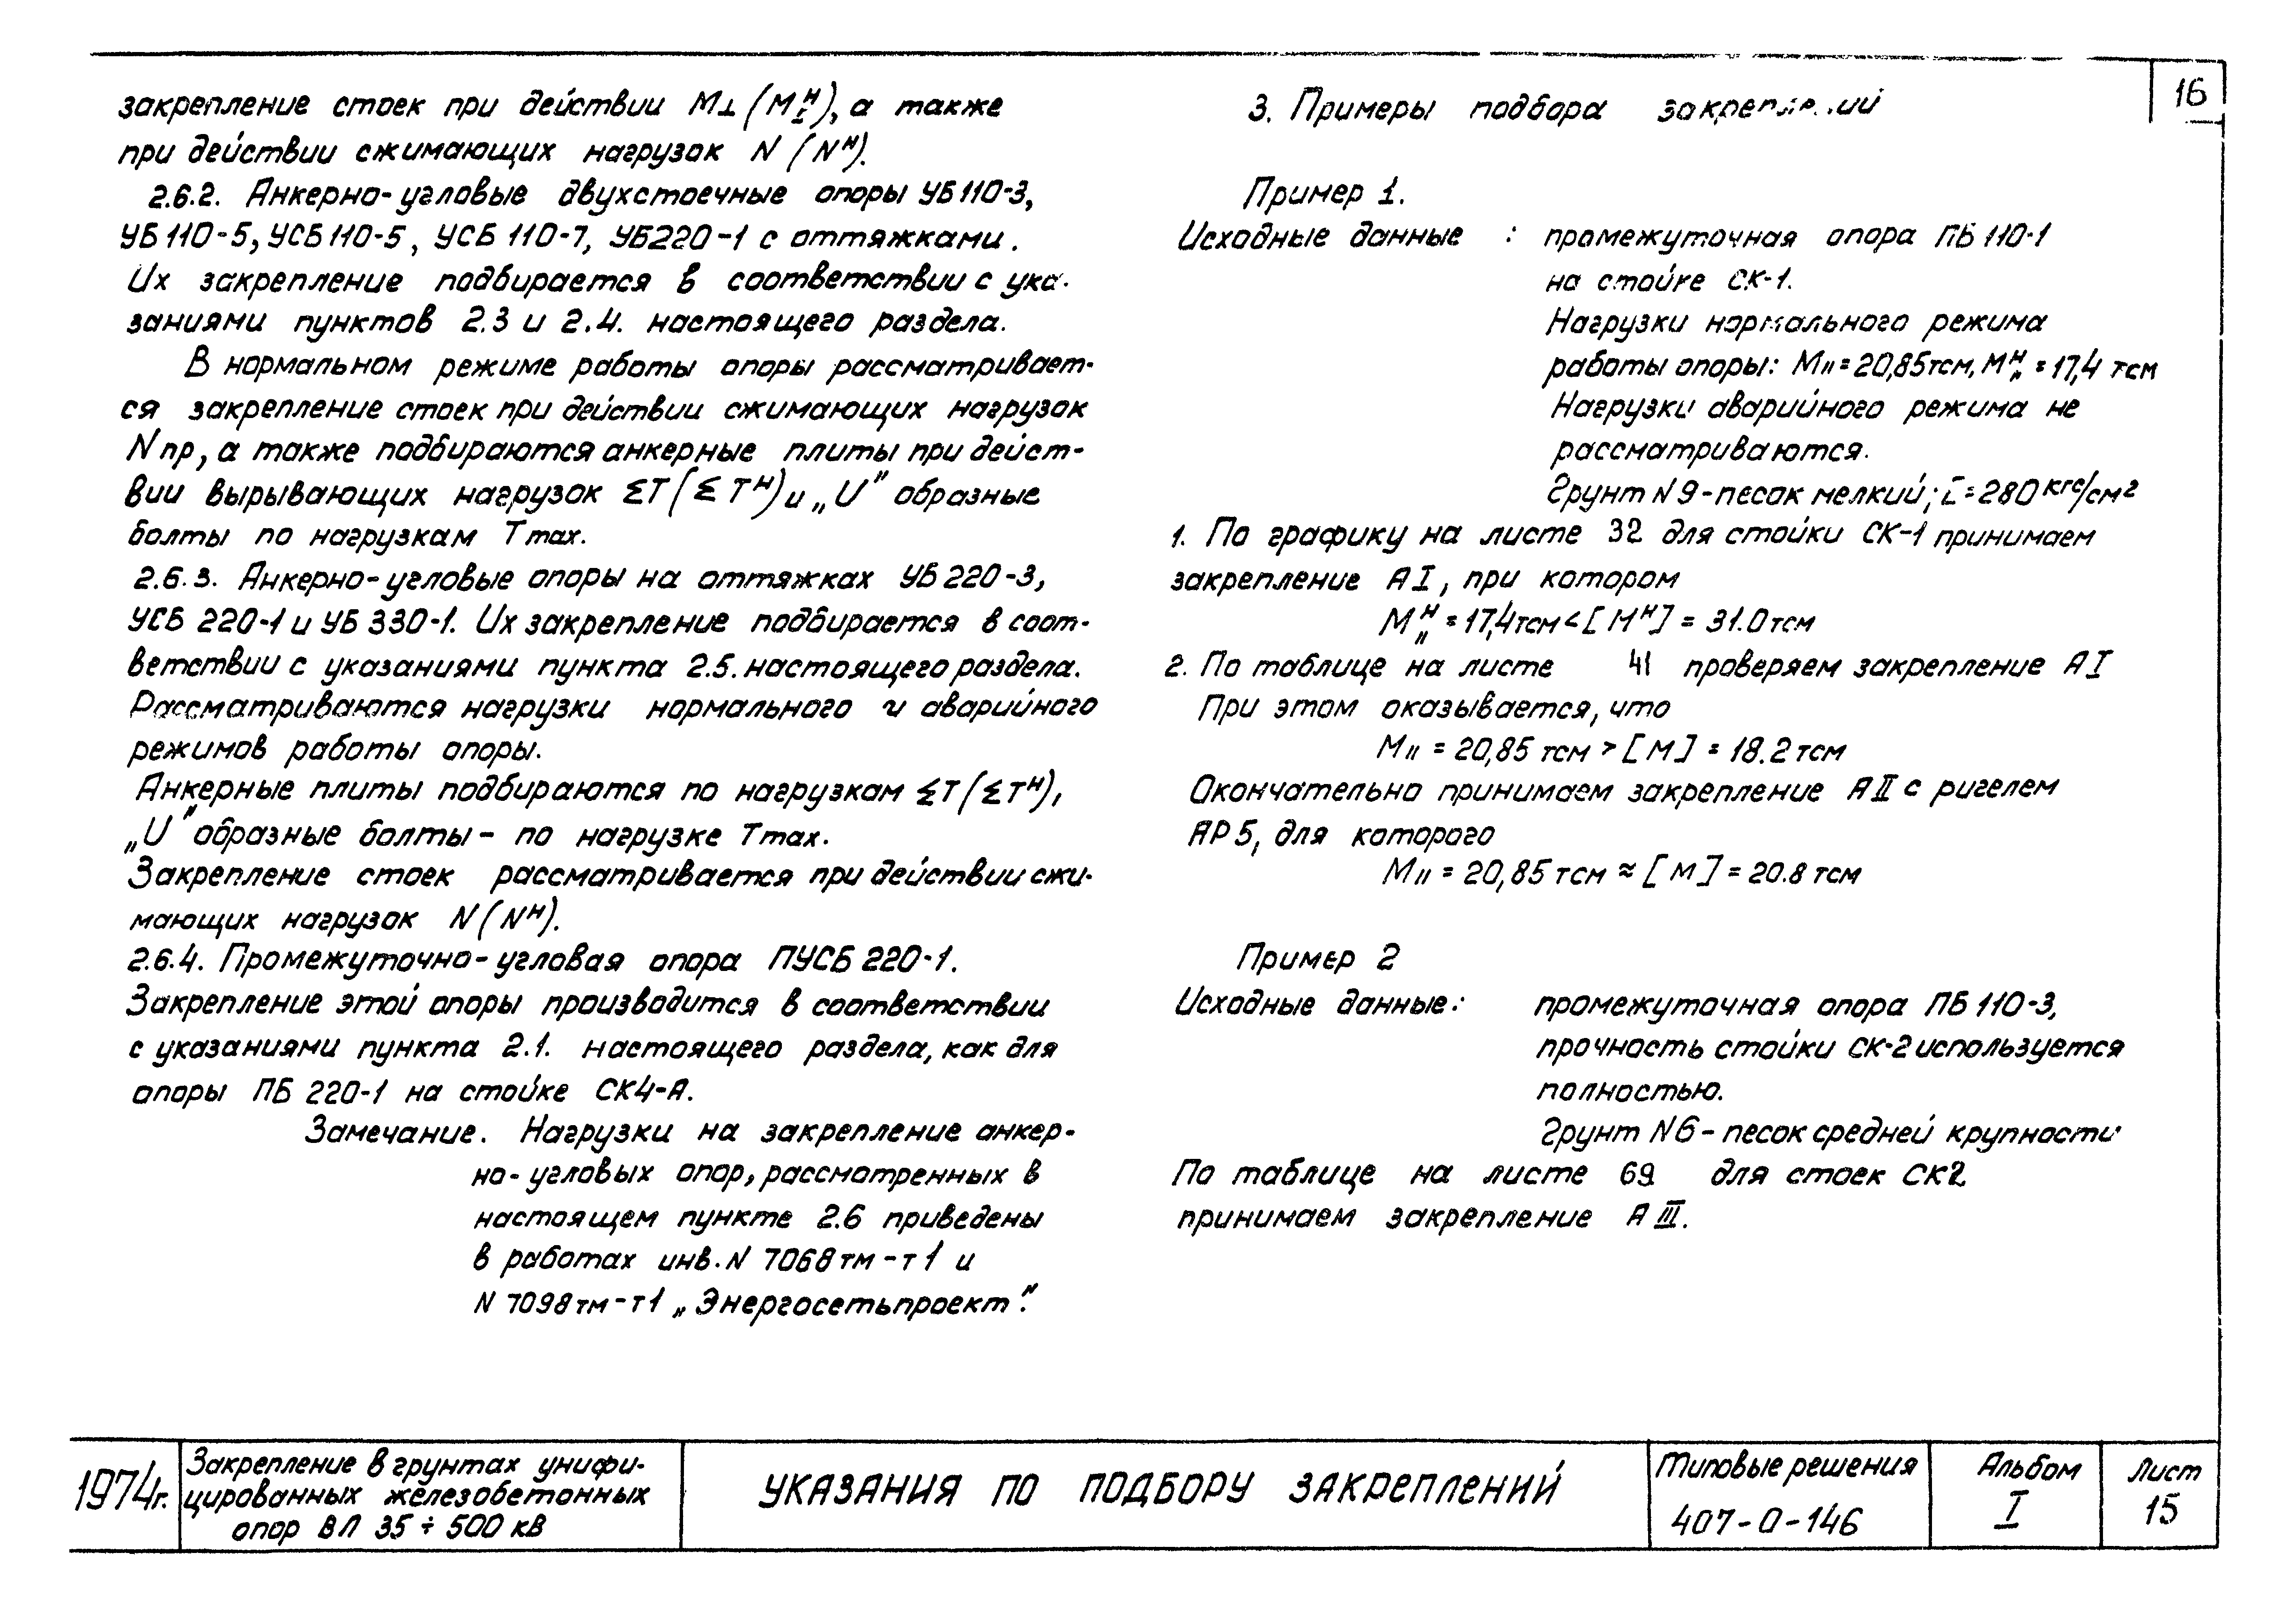 закрепление стоек при действии M⊥ (M⊥ᴴ), а также
при действии сжимающих нагрузок N (Nᴴ).
2.6.2. Анкерно-угловые двухстоечные опоры УБ110-3,
УБ110-5, УСБ110-5, УСБ 110-7, УБ220-1 с оттяжками.
Их закрепление подбирается в соответствии с ука-
заниями пунктов 2.3 и 2.4. настоящего раздела.
В нормальном режиме работы опоры рассматривает-
ся закрепление стоек при действии сжимающих нагрузок
Nпр, а также подбираются анкерные плиты при дейст-
вии вырывающих нагрузок ΣT (ΣTᴴ) и „U" образные
болты по нагрузкам Tmax.
2.6.3. Анкерно-угловые опоры на оттяжках УБ 220-3,
УСБ 220-1 и УБ 330-1. Их закрепление подбирается в соот-
ветствии с указаниями пункта 2.5. настоящего раздела.
Рассматриваются нагрузки нормального и аварийного
режимов работы опоры.
Анкерные плиты подбираются по нагрузкам ΣT (ΣTᴴ),
„U" образные болты - по нагрузке Tmax.
Закрепление стоек рассматривается при действии сжи-
мающих нагрузок N (Nᴴ).
2.6.4. Промежуточно-угловая опора ПУСБ 220-1.
Закрепление этой опоры производится в соответствии
с указаниями пункта 2.1. настоящего раздела, как для
опоры ПБ 220-1 на стойке СК4-А.
Замечание. Нагрузки на закрепление анкер-
но-угловых опор, рассмотренных в
настоящем пункте 2.6 приведены
в работах инв. N 7068тм-т1 и
N 7098тм-т1 „Энергосетьпроект".
16
3. Примеры подбора закреплений
Пример 1.
Исходные данные : промежуточная опора ПБ 110-1
на стойке СК-1.
Нагрузки нормального режима
работы опоры: M॥ = 20,85тсм, M॥ᴴ = 17,4 тсм
Нагрузки аварийного режима не
рассматриваются.
Грунт N 9 - песок мелкий; E = 280 кгс/см²
1. По графику на листе 32 для стойки СК-1 принимаем
закрепление А I, при котором
M॥ᴴ = 17,4тсм < [Mᴴ] = 31.0 тсм
2. По таблице на листе 41 проверяем закрепление А I
При этом оказывается, что
M॥ = 20,85 тсм > [M] = 18.2 тсм
Окончательно принимаем закрепление А II с ригелем
АР5, для которого
M॥ = 20,85 тсм ≈ [M] = 20.8 тсм
Пример 2
Исходные данные: промежуточная опора ПБ 110-3,
прочность стойки СК-2 используется
полностью.
Грунт N6 - песок средней крупности
По таблице на листе 69 для стоек СК2
принимаем закрепление А III.
1974г.
Закрепление в грунтах унифи-
цированных железобетонных
опор ВЛ 35 ÷ 500 кВ
УКАЗАНИЯ ПО ПОДБОРУ ЗАКРЕПЛЕНИЙ
Типовые решения
407-0-146
Альбом
I
Лист
15